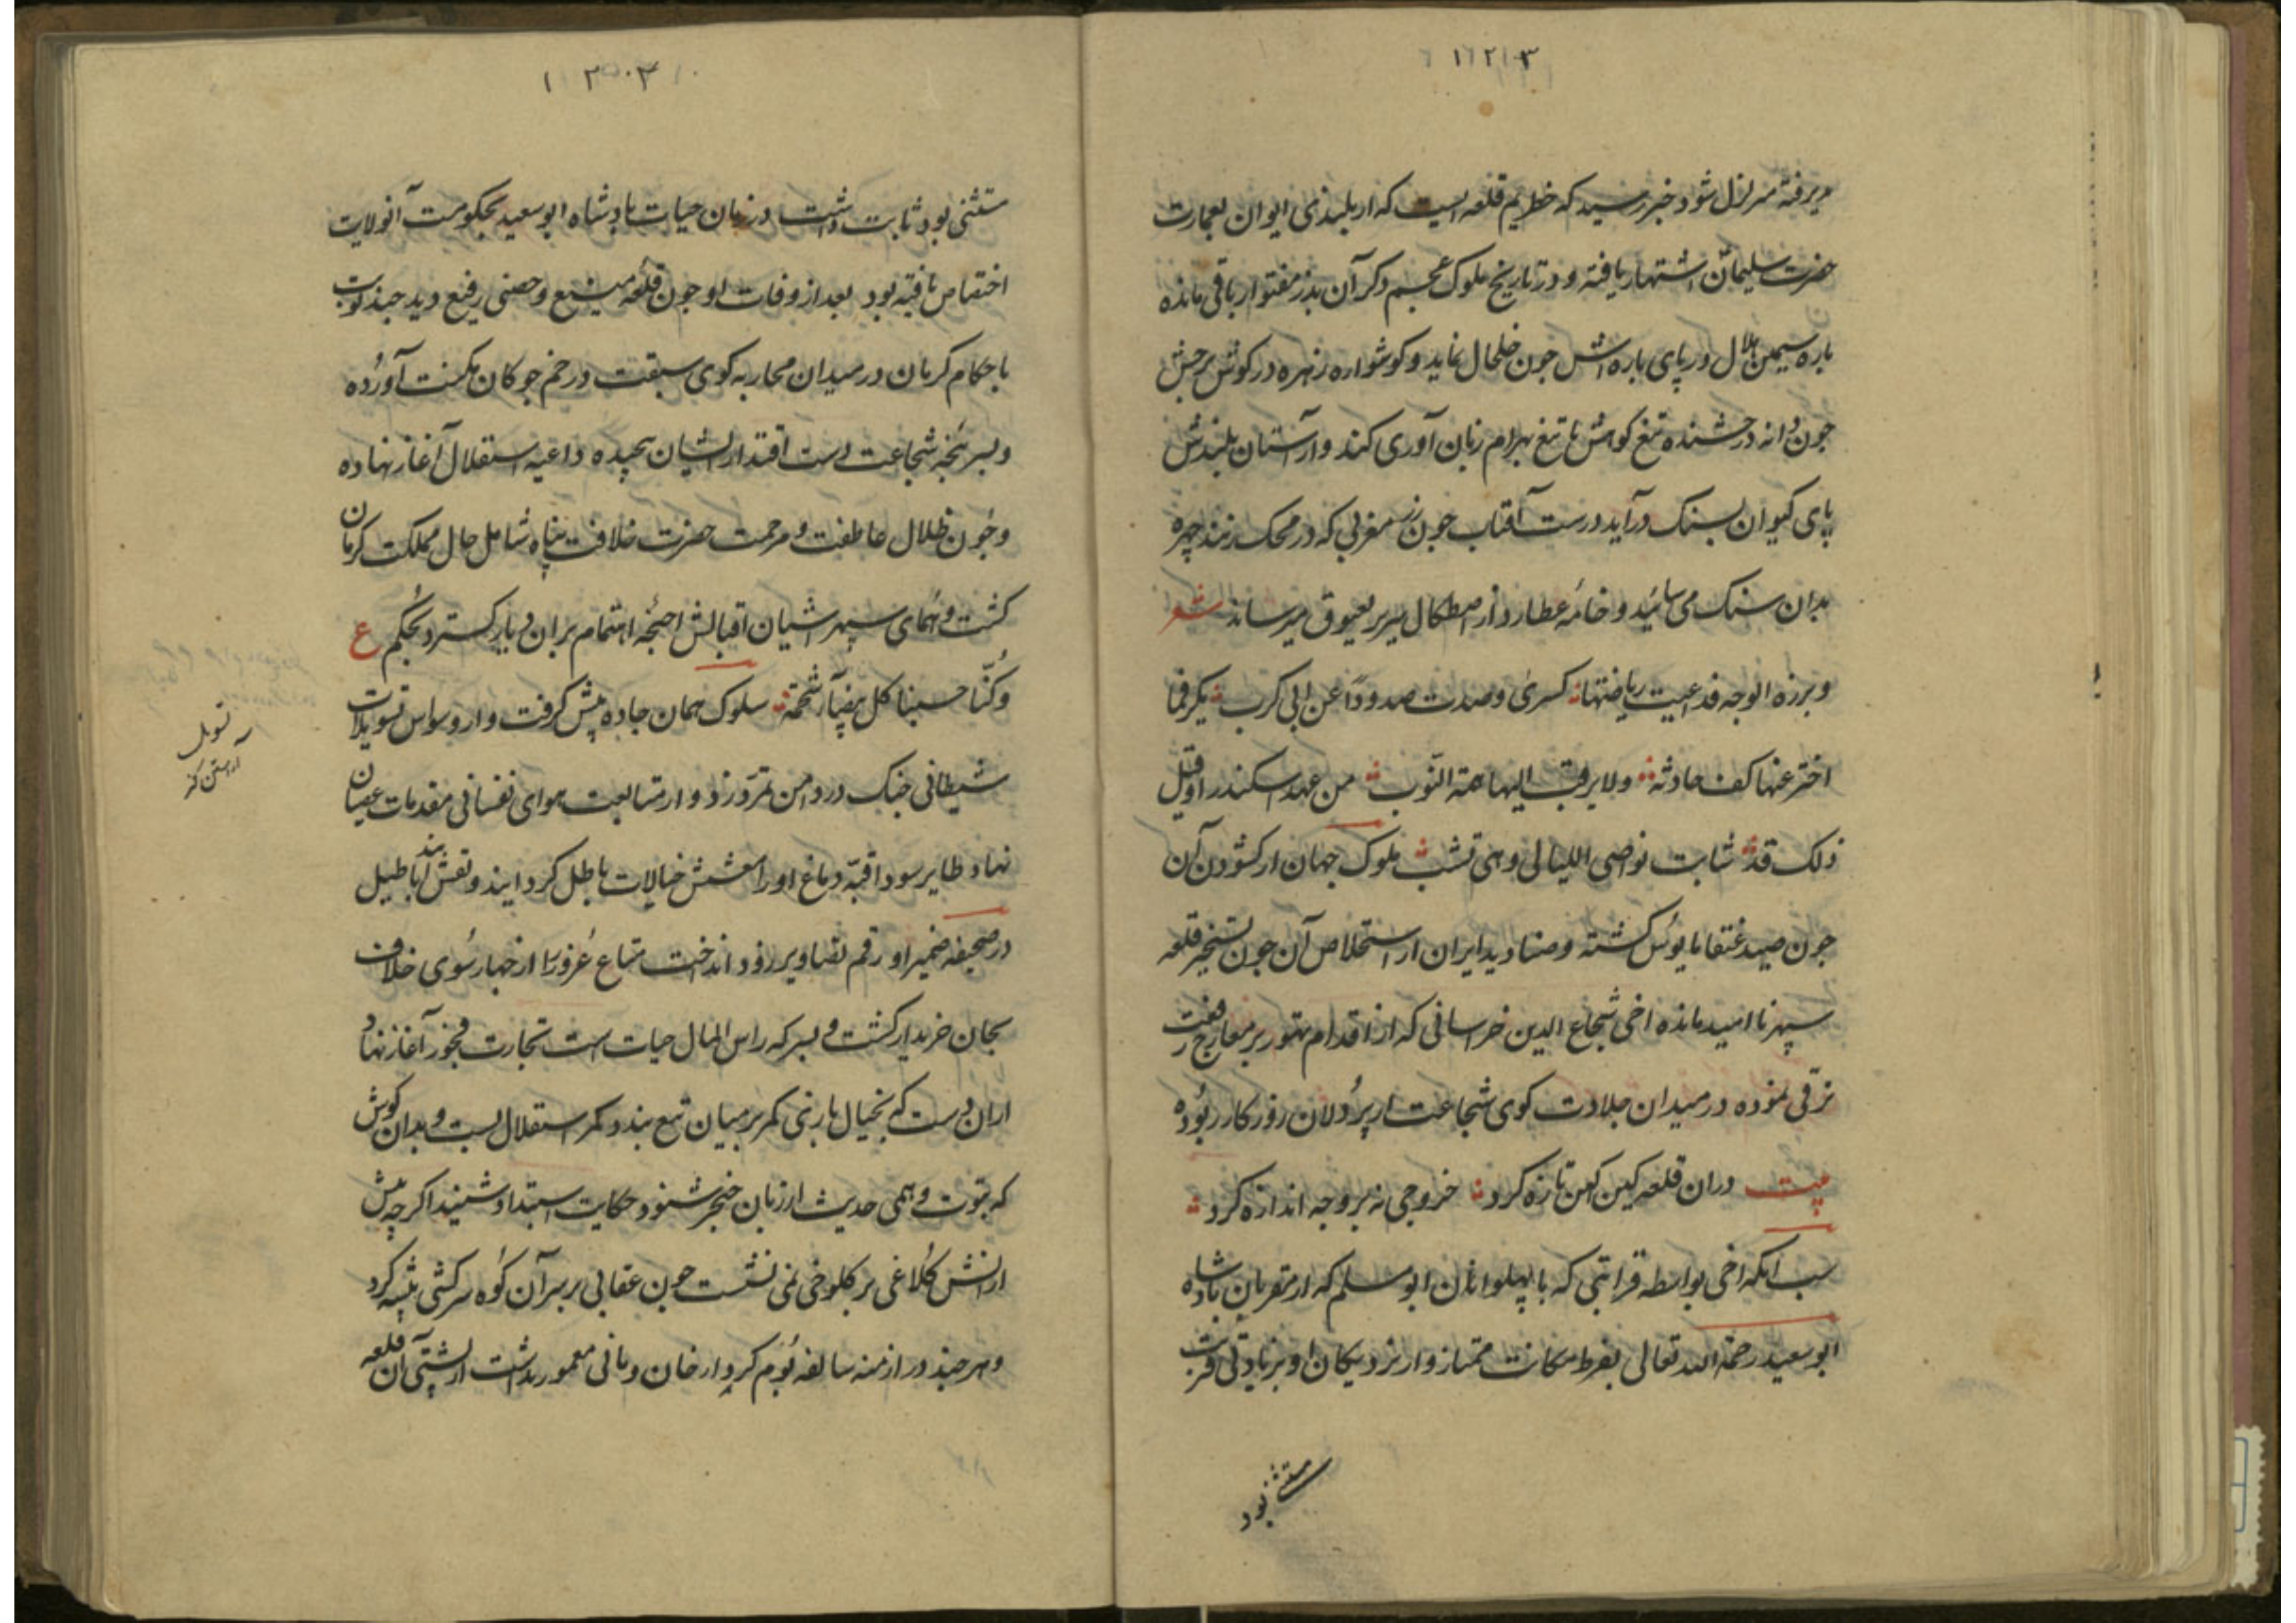 ۱۲۱۳
پذیرفته متزلزل شود خبر رسید که خطه بم قلعه ایست که از بلندی ایوان بعمارت
حضرت سلیمان اشتهار یافته و در تاریخ ملوک عجم ذکر آن باقی مانده
باره سیمین هلال در پای باره اش جون خلخال نماید و کوشواره زهره در کوش برجش
جون دانه درخشنده تیغ کوهش با تیغ بهرام زبان آوری کند و از آستان بلندش
پای کیوان بسنک درآید درست آفتاب جون زر مغربی که در محک زنند چهره
بدان سنک می ساید و خامه عطارد از اصطکاک سریر بعیوق میرساند شعر
وبرزه الوجه قد اعیت ریاضتها کسری وصدت صدودا عن ابی کرب بکر فما
اخترعتها کف حادثة ولا ترقت الیها همة النوب من عهد اسکندر او قبل
ذلک قد شابت نواصی اللیالی وهی لم تشب ملوک جهان از کشودن آن
جون صید عنقا مایوس کشته و صنادید ایران از استخلاص آن جون تسخیر قلعه
سپهر نا امید مانده اخی شجاع الدین خراسانی که از اقدام تهور بر معارج رفعت
ترقی نموده در میدان جلادت کوی شجاعت از پردلان روزکار ربوده
بیت دران قلعه کین کهن تازه کرد خروجی نه بر وجه اندازه کرد
سبب آنکه اخی بواسطه قرابتی که با پهلوانان ابو مسلم که از مقربان پادشاه
ابو سعید رحمة الله تعالی بفرط مکانت ممتاز و از نزدیکان او بزیادتی قربت
مستثنی بود
۱۲۰۳
مستثنی بود ثابت داشت در زمان حیات پادشاه ابو سعید بحکومت آنولایت
اختصاص یافته بود بعد از وفات او جون قلعه منیع و حصنی رفیع دید جند نوبت
با حکام کرمان در میدان محاربه کوی سبقت در خم جوکان مکنت آورده
و بسر پنجه شجاعت دست اقتدار ایشان پیچیده داعیه استقلال آغاز نهاده
و جون ظلال عاطفت و مرحمت حضرت خلافت پناه شامل حال مملکت کرمان
کشت و همای سپهر آشیان اقبالش اجنحه اهتمام بران دیار کسترد بحکم ع
وکنا حسبنا کل بیضاء شحمة سلوک همان جاده پیش کرفت و از وسواس تسویلات
شیطانی جنک در دامن تمرد زد و از متابعت هوای نفسانی مقدمات عصیان
نهاد طایر سودا قبه دماغ او را معشش خیالات باطل کردانید و نقش بند اباطیل
در صحیفه ضمیر او رقم تصاویر زور انداخت متاع غرور را از جهار سوی خلاف
بجان خریدار کشت و بسر که راس المال حیات است تجارت فجور آغاز نهاد
ازان دست که بخیال بازی کمر بر میان تیغ بندد کمر استقلال بست و بدان کوش
که بقوت وهمی حدیث از زبان خنجر شنود حکایت استبداد شنید اکرچه پیش
ازانش کلاغی بر کلوخی نمی نشست جون عقابی بر سر آن کوه سرکشی پیشه کرد
و هر جند در ازمنه سالفه بوم کردار خان و مانی معمور نداشت از پشتی آن قلعه
تسویل
آراستن کژ